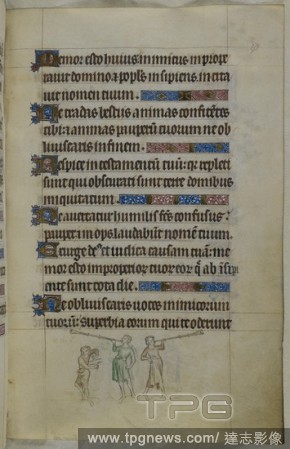 Memor esto huius inimicus in prope
rauit domino: & popls insipiens incita
uit nomen tuum.
Ne tradas bestiis animas confitetes
tibi: & animas paupm tuorum ne ob
liuiscaris in finem.
Respice in testamentū tuū: qr repleti
sunt qui obscurati sunt terre domibus
iniquitatum.
Ne auertatur humilis fcs confusus:
pauper & inops laudabūt nomen tuum.
Exurge de' & iudica causam tuā: me
mor esto improperior tuor eor q ab īsipi
ente sunt tota die.
Ne obliuiscaris uoces inimicorum
tuorū: superbia eorum qui te oderunt
TPG
www.tpgnews.com/達志影像